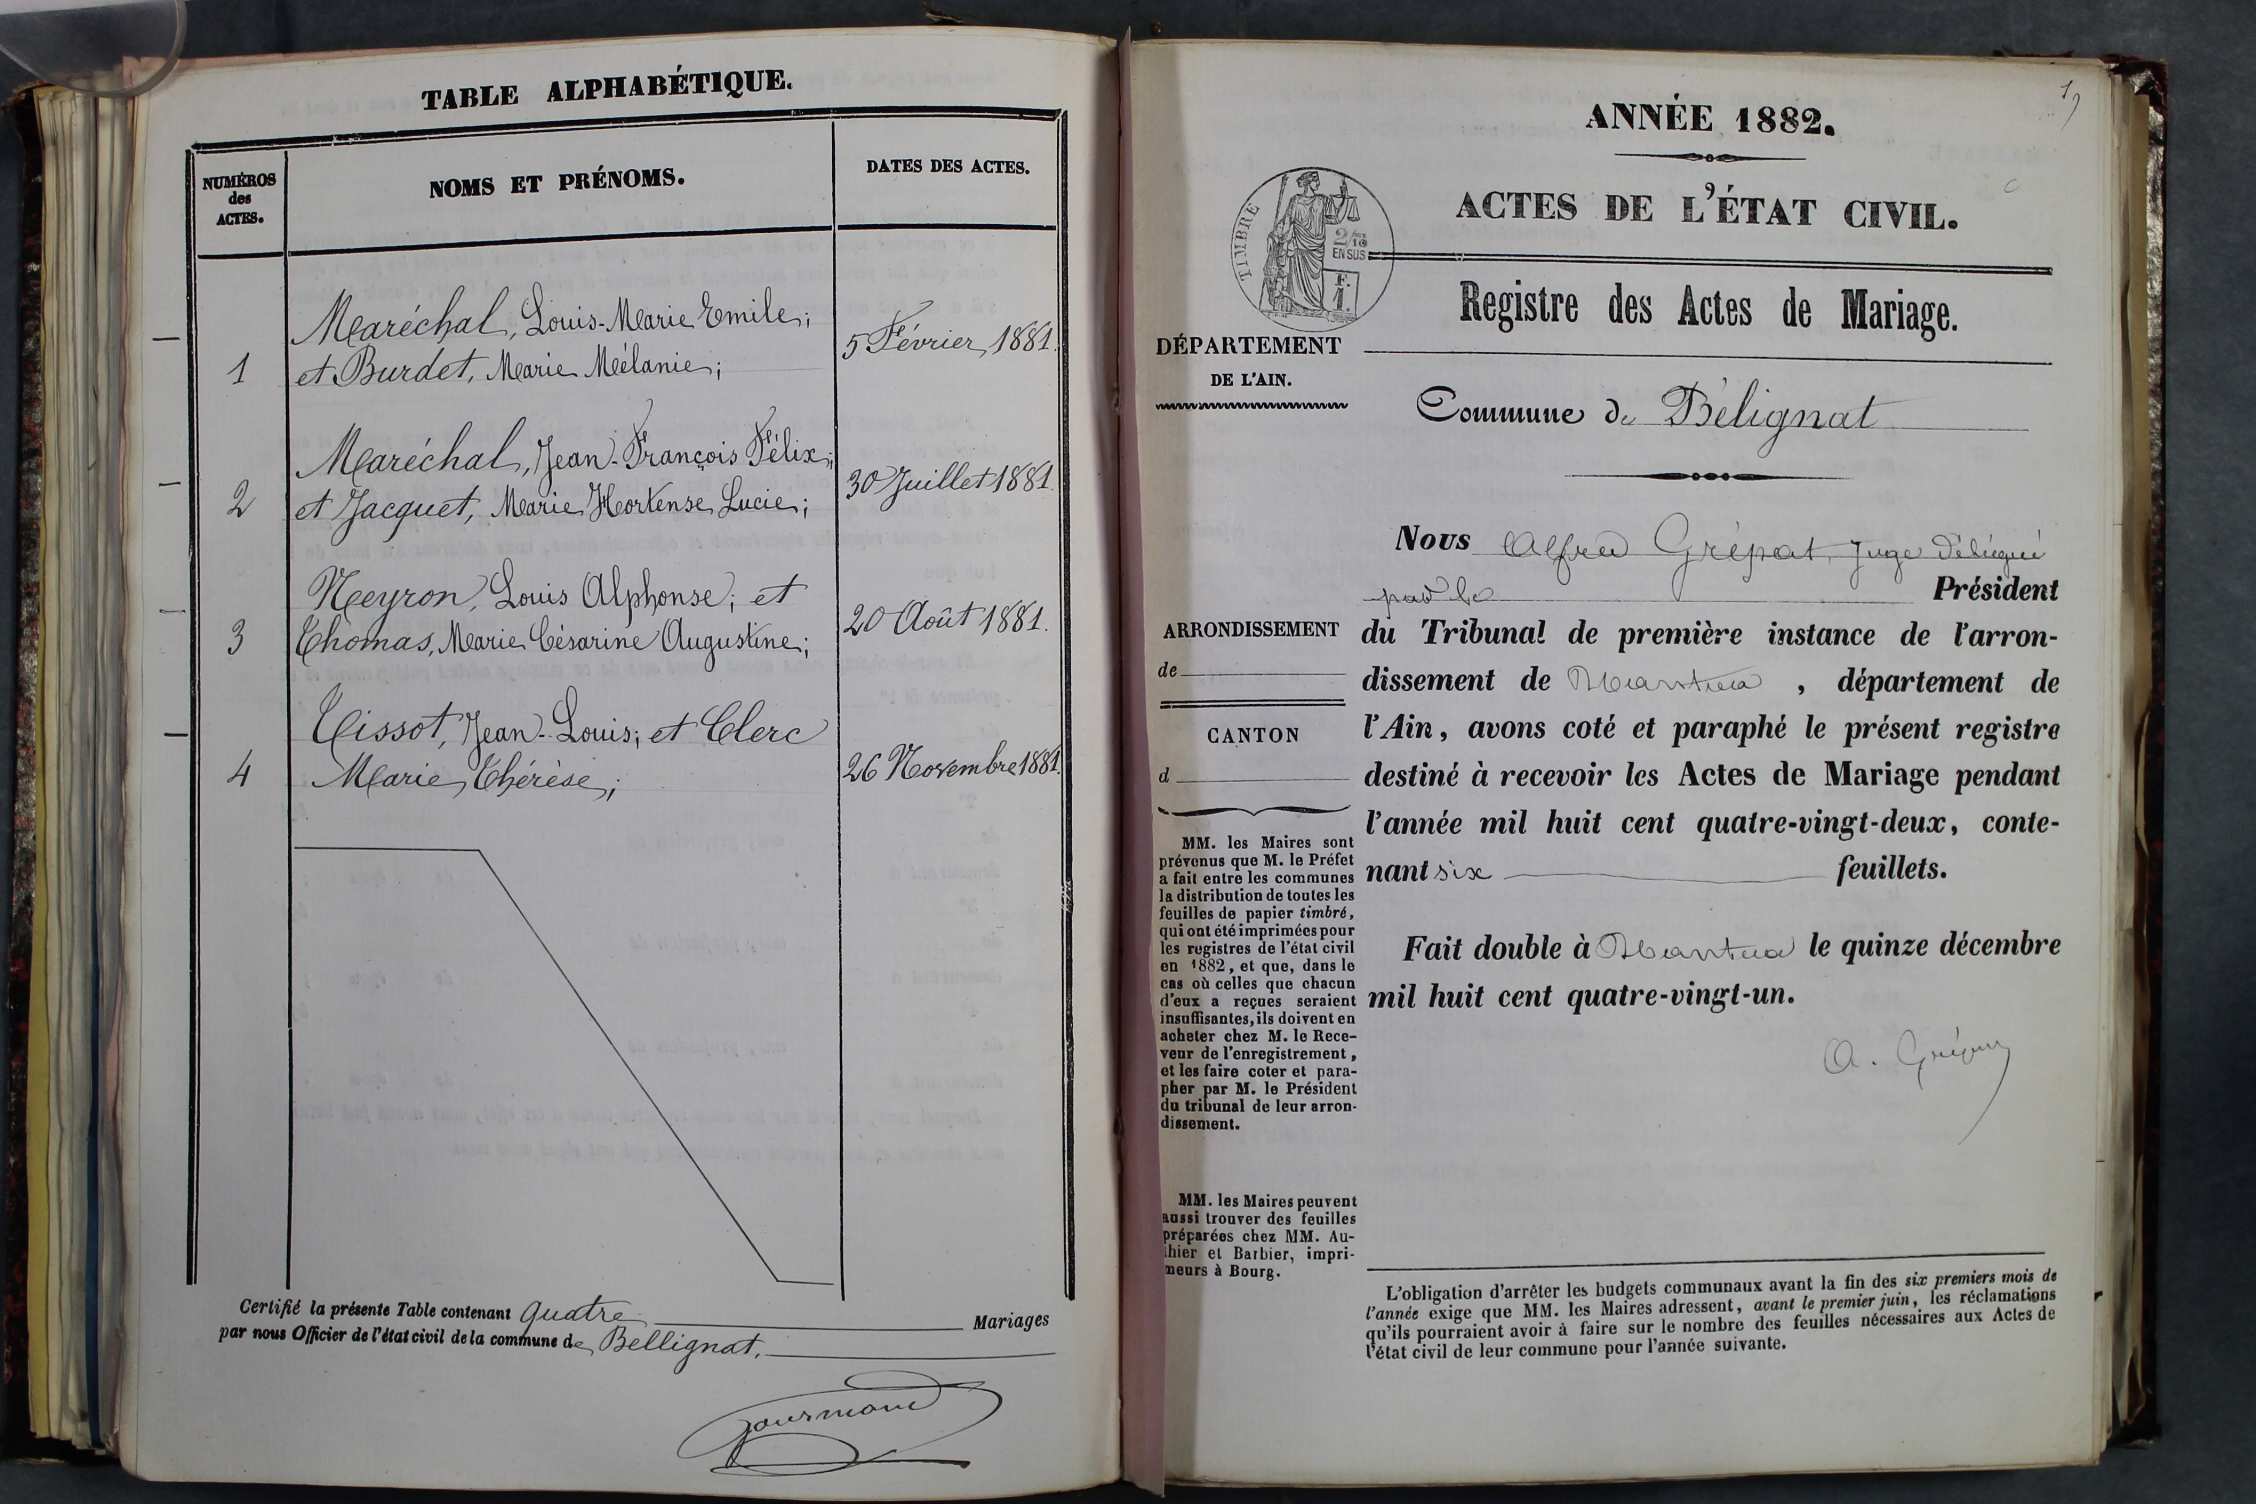 TABLE ALPHABÉTIQUE.
NUMÉROS
des
ACTES.
NOMS ET PRÉNOMS.
DATES DES ACTES.
Maréchal, Louis-Marie Emile;
1 et Burdet, Marie Mélanie;
5 Février 1881.
Maréchal, Jean-François Félix;
2 et Jacquet, Marie Hortense Lucie;
30 Juillet 1881.
Neyron, Louis Alphonse; et
3 Thomas, Marie Césarine Augustine;
20 Août 1881.
Tissot, Jean-Louis; et Clerc
4 Marie Thérèse;
26 Novembre 1881.
Certifié la présente Table contenant quatre Mariages
par nous Officier de l'état civil de la commune de Bellignat.
Gourmand
ANNÉE 1882.
ACTES DE L'ÉTAT CIVIL.
TIMBRE
2/10
EN SUS
F.
1.
Registre des Actes de Mariage.
DÉPARTEMENT
DE L'AIN.
Commune de Bélignat
Nous Alfred Grépat, Juge délégué
par le Président
du Tribunal de première instance de l'arron-
dissement de Nantua, département de
l'Ain, avons coté et paraphé le présent registre
destiné à recevoir les Actes de Mariage pendant
l'année mil huit cent quatre-vingt-deux, conte-
nant six feuillets.
Fait double à Nantua le quinze décembre
mil huit cent quatre-vingt-un.
ARRONDISSEMENT
de
CANTON
d
MM. les Maires sont
prévenus que M. le Préfet
a fait entre les communes
la distribution de toutes les
feuilles de papier timbré,
qui ont été imprimées pour
les registres de l'état civil
en 1882, et que, dans le
cas où celles que chacun
d'eux a reçues seraient
insuffisantes, ils doivent en
acheter chez M. le Rece-
veur de l'enregistrement,
et les faire coter et para-
pher par M. le Président
du tribunal de leur arron-
dissement.
MM. les Maires peuvent
aussi trouver des feuilles
préparées chez MM. Au-
thier et Barbier, impri-
meurs à Bourg.
L'obligation d'arrêter les budgets communaux avant la fin des six premiers mois de
l'année exige que MM. les Maires adressent, avant le premier juin, les réclamations
qu'ils pourraient avoir à faire sur le nombre des feuilles nécessaires aux Actes de
l'état civil de leur commune pour l'année suivante.